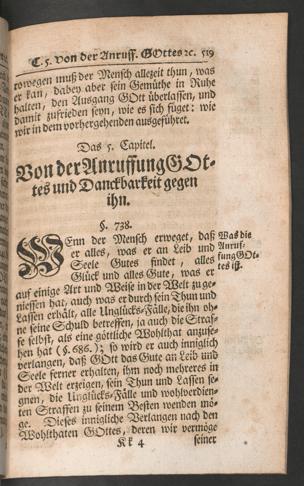 C. 5. von der Anruff. GOttes ꝛc. 519
rowegen muß der Mensch allezeit thun, was
er kan, dabey aber sein Gemüthe in Ruhe
halten, den Ausgang GOtt überlassen, und
damit zufrieden seyn, wie es sich füget: wie
wir in dem vorhergehenden ausgeführet.
Das 5. Capitel.
Von der Anruffung GOt-
tes und Danckbarkeit gegen
ihn.
§. 738.
WEnn der Mensch erweget, daß
er alles, was er an Leib und
Seele Gutes findet, alles
Glück und alles Gute, was er
auf einige Art und Weise in der Welt zu ge-
niessen hat, auch was er durch sein Thun und
Lassen erhält, alle Unglücks-Fälle, die ihn oh-
ne seine Schuld betreffen, ja auch die Straf-
fe selbst, als eine göttliche Wohlthat anzuse-
hen hat (§. 686.); so wird er auch inniglich
verlangen, daß GOtt das Gute an Leib und
Seele ferner erhalten, ihm noch mehreres in
der Welt erzeigen, sein Thun und Lassen se-
gnen, die Unglücks-Fälle und wohlverdien-
ten Straffen zu seinem Besten wenden mö-
ge. Dieses innigliche Verlangen nach den
Wohlthaten GOttes, deren wir vermöge
Kk 4 seiner
Was die
Anruf-
fung GOt-
tes ist.